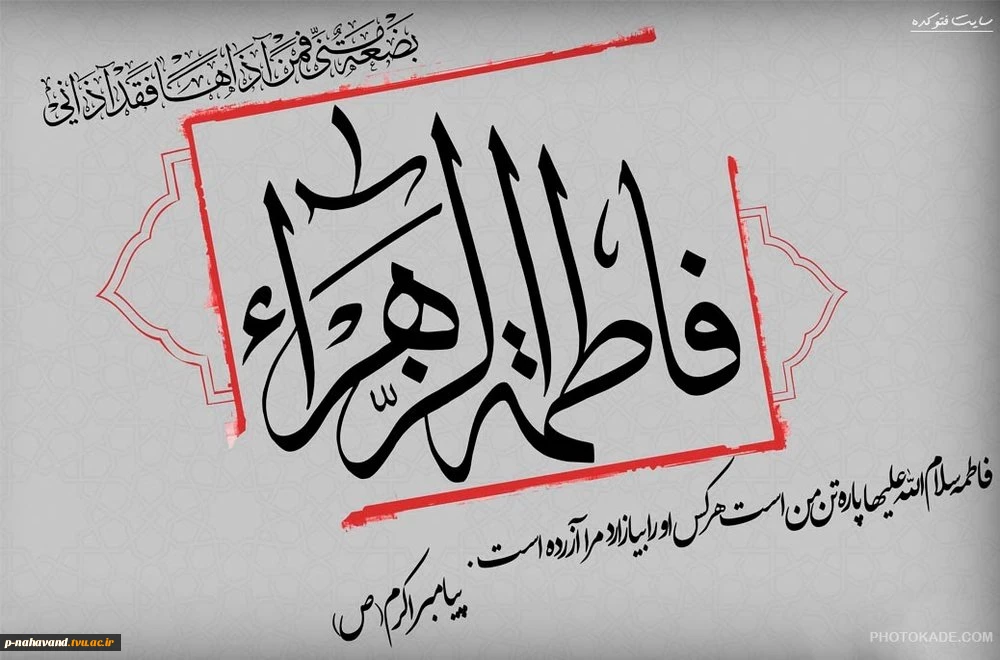 سایت فتوکده
بضعة منّی فمن آذاها فقد آذانی
فاطمة الزهراء
فاطمه سلام الله علیها پاره تن من است هر کس او را بیازارد مرا آزرده است.
پیامبر اکرم (ص)
p-nahavand.tvu.ac.ir
PHOTOKADE.COM